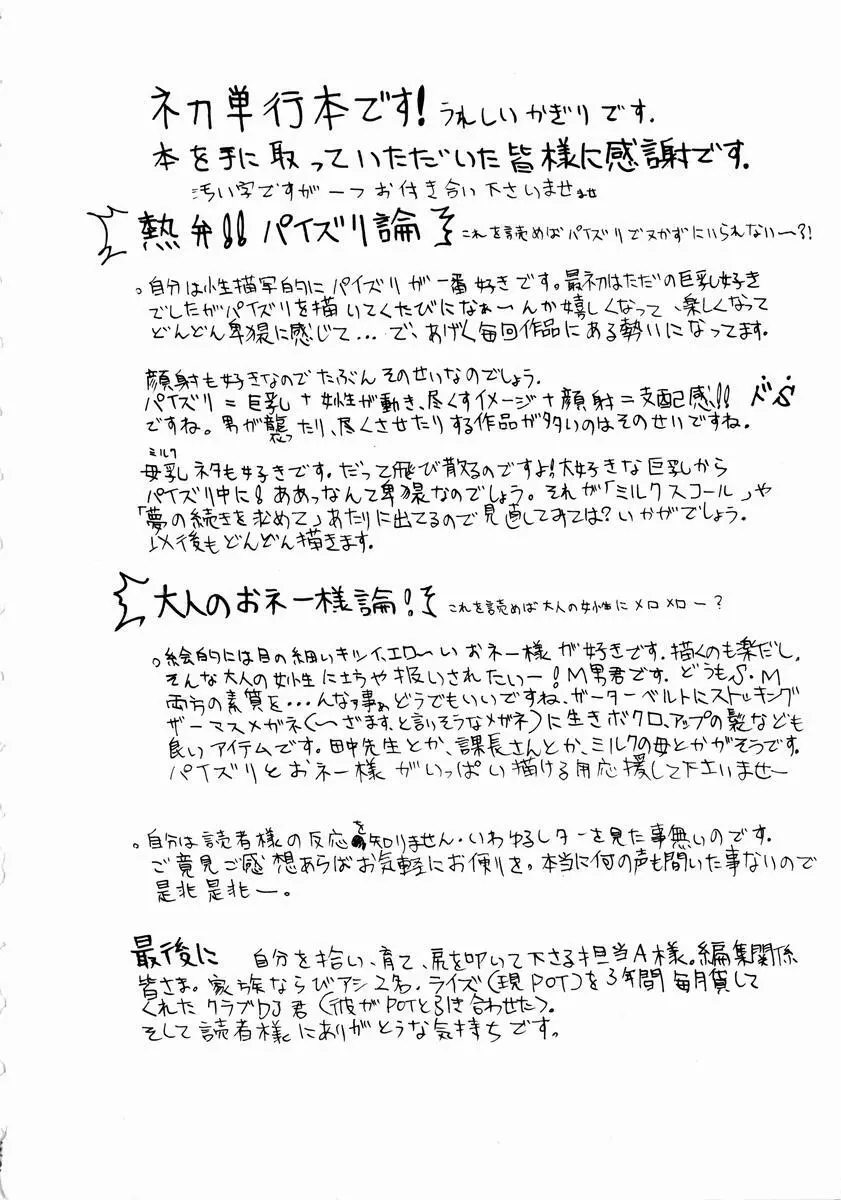 初単行本です! うれしいかぎりです.
本を手に取っていただいた皆様に感謝です.
汚い字ですが一つお付き合い下さいませませ
熱弁!! パイズリ論 これを読めばパイズリでヌかずにいられないー?!
。自分は性描写的にパイズリが一番好きです。最初はただの巨乳好き
でしたがパイズリを描いてくたびになぁーんか嬉しくなって、楽しくなって
どんどん卑猥に感じて...で、あげく毎回作品にある勢いになってます.
顔射も好きなのでたぶんそのせいなのでしょう.
パイズリ=巨乳+女性が動き、尽くすイメージ+顔射=支配感!! ドS
ですね。男が襲ったり、尽くさせたりする作品が多いのはそのせいですね.
ミルク
母乳ネタも好きです.だって飛び散るのですよ!大好きな巨乳から
パイズリ中に!ああっなんて卑猥なのでしょう。それが「ミルクスコール」や
「夢の続きを求めて」あたりに出てるので見直してみては?いかがでしょう.
以後もどんどん描きます.
大人のおネー様論! これを読めば大人の女性にメロメロー?
。絵的には目の細いキツイ、エローいおネー様が好きです.描くのも楽だし,
そんな大人の女性に土ちや扱いされたいー!M男君です.どうもS・M
両方の素質を...んなァ事ぁどうでもいいですね、ガーターベルトにストッキング
ザーマスメガネ(〜ざます、と言いそうなメガネ)に生きボクロ、アップの髪なども
良いアイテムです.田中先生とか、課長さんとか、ミルクの母とかがそうです.
パイズリとおネー様がいっぱい描ける用応援して下さいませー
。自分は読者様の反応を知りません.いわゆるレターを見た事無いのです.
ご意見ご感想あらばお気軽にお便りを。本当に何の声も聞いた事ないので
是非是非ー。
最後に 自分を拾い、育て、尻を叩いて下さる担当A様。編集関係
皆さま。家族ならびアシ2名.ライズ(現POT)を3年間毎月貸して
くれたクラブDJ君(彼がPOTと引き合わせた)。
そして読者様にありがとうな気持ちです。